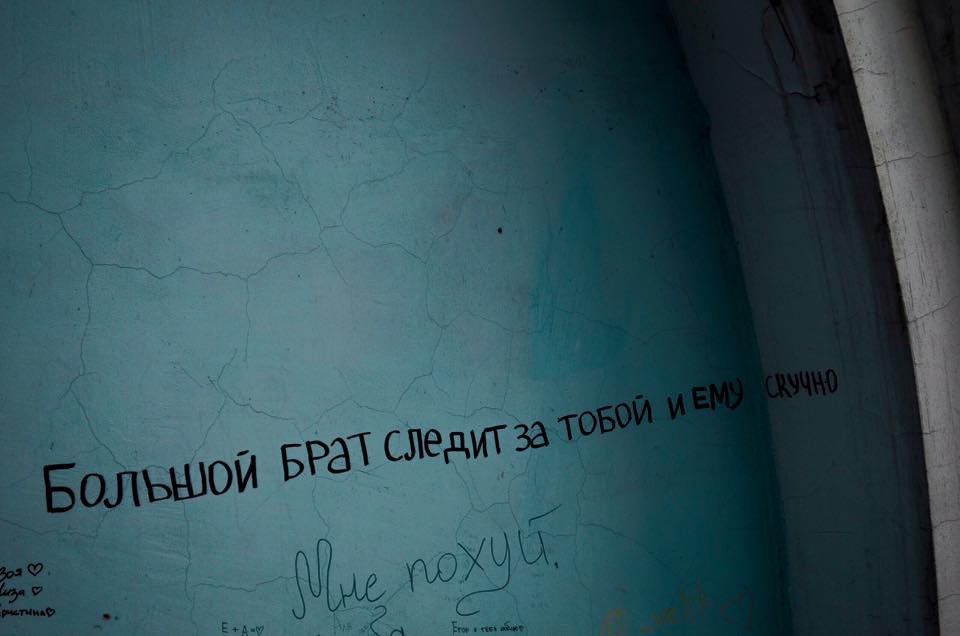 Большой БРАТ следит за ТОБОЙ и ЕМУ СКУЧНО
Мне похуй.
Зоя ♡.
Лиза ♡
Кристина♡
Е + А =♡
За